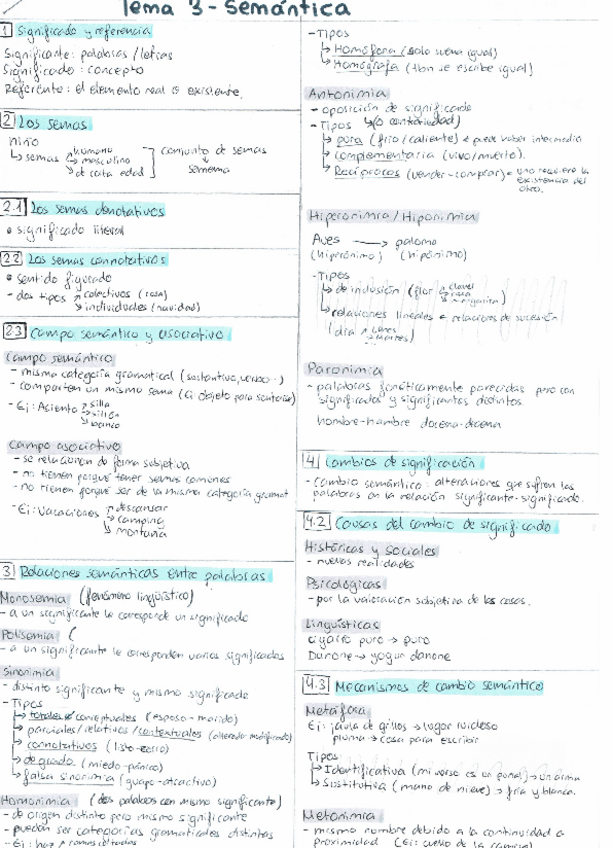 Tema 3 - Semántica
1 Significado y referencia
Significante: palabras / letras
Significado: concepto
Referente: el elemento real o existente.
2 Los semas
niño
↳ semas humano
masculino
de corta edad
conjunto de semas
semema
2.1 Los semas denotativos
• significado literal
2.2 Los semas connotativos
• sentido figurado
- dos tipos colectivos (rosa)
individuales (navidad)
2.3 Campo semántico y asociativo
Campo semántico
- misma categoría gramatical (sustantivo, verbo..)
- comparten un mismo sema (Ej objeto para sentarse)
- Ej: Asiento silla
sillón
banco
Campo asociativo
- se relacionan de forma subjetiva
- no tienen porque tener semas comunes
- no tienen porqué ser de la misma categoría gramat
- Ej: Vacaciones descansar
camping
montaña
3 Relaciones semánticas entre palabras
Monosemia (fenómeno lingüístico)
- a un significante le corresponde un significado
Polisemia (
- a un significante le corresponden varios significados
Sinonimia
- distinto significante y mismo significado
- Tipos
↳ totales o conceptuales (esposo - marido)
↳ parciales/relativos/contextuales (alterado-modificado)
↳ connotativos
↳ de grado (miedo - pánico)
↳ falsa sinonimia (guapo - atractivo)
Homonimia (dos palabras con mismo significante)
- de origen distinto pero mismo significante
- pueden ser categorías gramaticales distintas
- Ej: haz
- Tipos
↳ Homófona (solo suena igual)
↳ Homógrafa (tbn se escribe igual)
Antonimia
- oposición de significado
- Tipos (o contrariedad)
↳ pura (frío/caliente) puede haber intermedio
↳ complementaria (vivo/muerto).
↳ Recíprocos (vender - comprar) uno requiere la
existencia del
otro.
Hiperonimia / Hiponimia
Aves → paloma
(hiperónimo) (hipónimo)
- Tipos
↳ de inclusión (flor clavel
rosa
margarita)
↳ relaciones lineales o relaciones de sucesión
(día lunes
martes)
Paronimia
- palabras fonéticamente parecidas pero con
significados y significantes distintos.
hombre-hambre docena-decena
4 Cambios de significación
- Cambio semántico: alteraciones que sufren las
palabras en la relación significante-significado.
4.2 Causas del cambio de significado
Históricas y sociales
- nuevas realidades
Psicológicas
- por la valoración subjetiva de las cosas.
Lingüísticas
cigarro puro → puro
Danone → yogur danone
4.3 Mecanismos de cambio semántico
Metáfora
Ej: jaula de grillos → lugar ruidoso
pluma → cosa para escribir
Tipos
↳ Identificativa (mi verso es un puñal) → un arma
↳ Sustitutiva (mano de nieve) → fría y blanca.
Metonimia
- mismo nombre debido a la continuidad o
proximidad (Ej: cuello de la camisa)